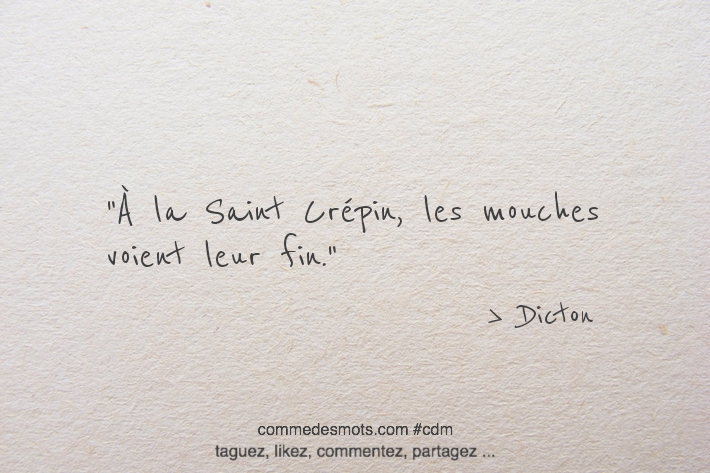 "À la Saint Crépin, les mouches
voient leur fin."
> Dicton
commedesmots.com #cdm
taguez, likez, commentez, partagez ...